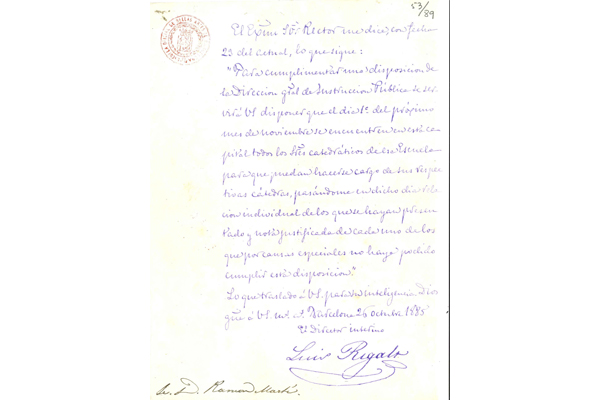 53/89
El Exmo Sór Rector me dice, con fecha
23 del actual, lo que sigue:
"Para cumplimentar una disposicion de
la Direccion gral de Instruccion Pública se ser-
virá VS. disponer que el dia 1º. del próximo
mes de noviembre se encuentren en está ca-
pital todos los Sres catedráticos de esa Escuela
para que puedan hacerse cargo de sus respec-
tivas cátedras, pasándome en dicho dia rela-
cion individual de los que se hayan presen-
tado y nota justificada de cada uno de los
que por causas especiales no haya podido
cumplir está disposicion."
Lo que traslado á VS. para su inteligencia Dios
gue á VS. m. a. Barcelona 26 octubre 1885
El Director interino
Luis Rigalt
Sr. D. Ramon Martí.